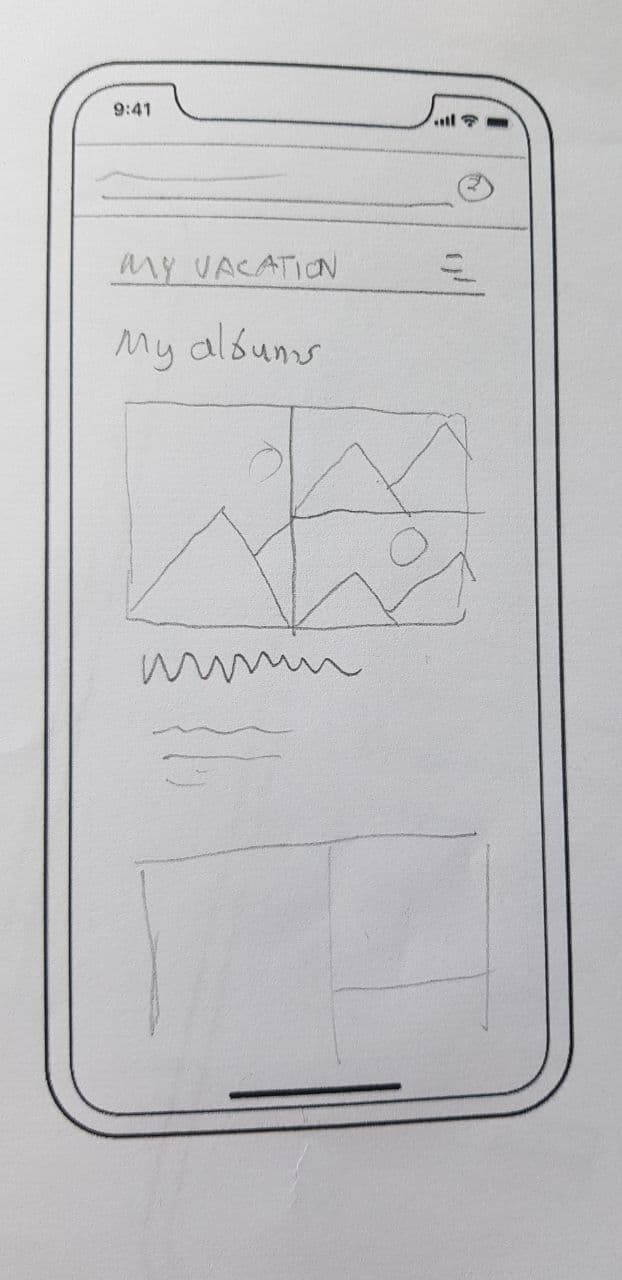 9:41
MY VACATION
My albums